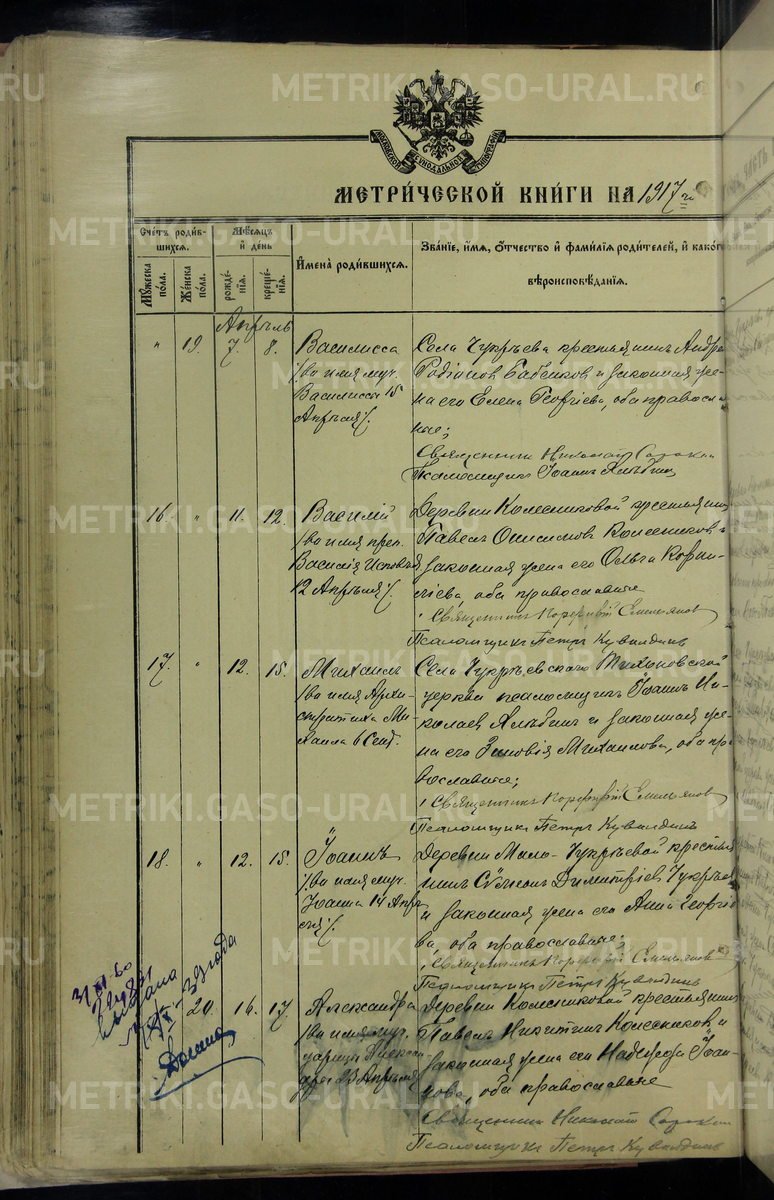 МЕТРИ́ЧЕСКОЙ КНИ́ГИ НА 1917 г.
Сче́тъ роди́в-
шихся.
Му́жеска
по́ла.
Же́нска
по́ла.
Мѣ́сяцъ
и́ день
рожде́-
нія.
креще́-
нія.
И҆мена̀ роди́вшихся.
Зва́ніе, и́мя, ѻ҆́тчество и҆ фами́лія роди́телей, и҆ како́г
вѣроисповѣ́данія.
Апрѣль
" 19. 7. 8. Василисса
/во имя муч.
Василиссы 15
Апрѣля/.
Села Чукрѣева крестьянинъ Андре
Родіонов и законная же-
на его Елена Георгіева, оба правосла
ные;
Священникъ Николай
Псаломщикъ Іоаннъ Хлѣбинъ
16. " 11. 12. Василій
/во имя преп.
Василія Исповѣд
12 Апрѣля/.
Деревни Колесниковой крестьянинъ
Павелъ Онисимовъ Колесников и
законная жена его Ольга Корни-
ліева, оба православные
Священникъ Порфирій Емельянов
Псаломщикъ Петръ Кувалдинъ
17. " 12. 15. Михаилъ
/во имя Архи-
стратига Ми-
хаила 6 Сент.
Села Чукрѣевскаго Тихоновской
церкви псаломщикъ Іоаннъ Ни-
колаев Хлѣбинъ и законная же-
на его Зиновія Михаилова, оба пра
вославные;
Священникъ Порфирій Емельянов
Псаломщикъ Петръ Кувалдинъ
18. " 12. 15. Іоаннъ
/во имя муч.
Іоанна 14 Апрѣ-
ля/.
Деревни Мало-Чукрѣевой крестья
нинъ Сѵмеонъ Димитріев Чукрѣев
и законная жена его Анна Георгіе
ва, оба православные;
Священникъ Порфирій Емельянов
Псаломщикъ Петръ Кувалдинъ
31/XI 60
выдана
39 года
20. 16. 17. Александра
/во имя муч.
царицы Алексан-
дры 23 Апрѣля/
Деревни Колесниковой крестьянинъ
Павелъ Никитинъ Колесников и
законная жена его Надежда Іоан-
нова, оба православные
Священникъ Николай
Псаломщикъ Петръ Кувалдинъ
METRIKI.GASO-URAL.RU